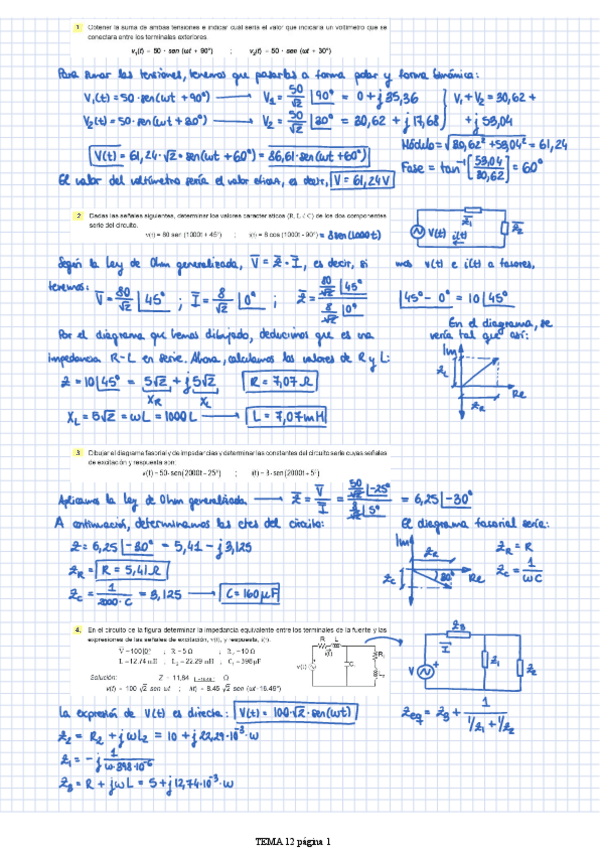 1 Obtener la suma de ambas tensiones e indicar cuál sería el valor que indicaría un voltímetro que se
conectara entre los terminales exteriores.
v₁(t) = 50 · sen (ωt + 90°) ; v₂(t) = 50 · sen (ωt + 30°)
Para sumar las tensiones, tenemos que pasarlas a forma polar y forma binómica:
V₁(t) = 50·sen(ωt + 90°) → V₁ = 50/√2 |90° = 0 + j35,36
V₁ + V₂ = 30,62 +
+ j 53,04
V₂(t) = 50·sen(ωt + 30°) → V₂ = 50/√2 |30° = 30,62 + j 17,68
Módulo = √30,62² + 53,04² = 61,24
V(t) = 61,24·√2·sen(ωt + 60°) = 86,61·sen(ωt + 60°)
Fase = tan⁻¹ [53,04/30,62] = 60°
El valor del voltímetro sería el valor eficaz, es decir, V = 61,24V
2 Dadas las señales siguientes, determinar los valores característicos (R, L / C) de los dos componentes
serie del circuito.
v(t) = 80 sen (1000t + 45°) ; i(t) = 8 cos (1000t - 90°) = 8 sen(1000t)
V(t) i(t) Z₁ Z₂
Según la Ley de Ohm generalizada, V = Z · I, es decir, si
v(t) e i(t) a fasores,
tenemos: V = 80/√2 |45° ; I = 8/√2 |0° ; Z = 80/√2 |45° / 8/√2 |0°
|45° - 0° = 10 |45°
Por el diagrama que hemos dibujado, deducimos que es una
En el diagrama, se
vería tal que así:
impedancia R-L en serie. Ahora, calculamos los valores de R y L:
Z = 10|45° = 5√2 + j5√2
XR XL
R = 7,07 Ω
Im Z_L Z_R Re
X_L = 5√2 = ωL = 1000L → L = 7,07mH
3 Dibujar el diagrama fasorial y de impedancias y determinar las constantes del circuito serie cuyas señales
de excitación y respuesta son:
v(t) = 50· sen(2000t - 25°) ; i(t) = 8· sen (2000t + 5°)
Aplicamos la ley de Ohm generalizada → Z = V/I = 50/√2 |-25° / 8/√2 |5° = 6,25 |-30°
A continuación, determinamos las ctes del circuito:
El diagrama fasorial sería:
Z = 6,25 |-30° = 5,41 - j 3,125
Im Z_R Z_C 30° Re
Z_R = R
Z_R = R = 5,41 Ω
Z_C = 1/ωC
Z_C = 1/2000·C = 3,125 → C = 160 μF
4. En el circuito de la figura determinar la impedancia equivalente entre los terminales de la fuente y las
expresiones de las señales de excitación, v(t), y respuesta, i(t).
V = 100|0°
Solución: Z = 11,84 Ω
v(t) = 100 √2 sen ωt ; i(t) = 8.45 √2 sen (ωt-16.49°)
V I Z₃ Z₁ Z₂
La expresión de V(t) es directa: V(t) = 100·√2·sen(ωt)
Zeq = Z₃ + 1 / 1/Z₁ + 1/Z₂
Z₂ = R₂ + jωL₂ = 10 + j 22,29·10⁻³·ω
Z₁ = -j 1/ω·398·10⁻⁶
Z₃ = R + jωL = 5 + j12,74·10⁻³·ω
TEMA 12 página 1